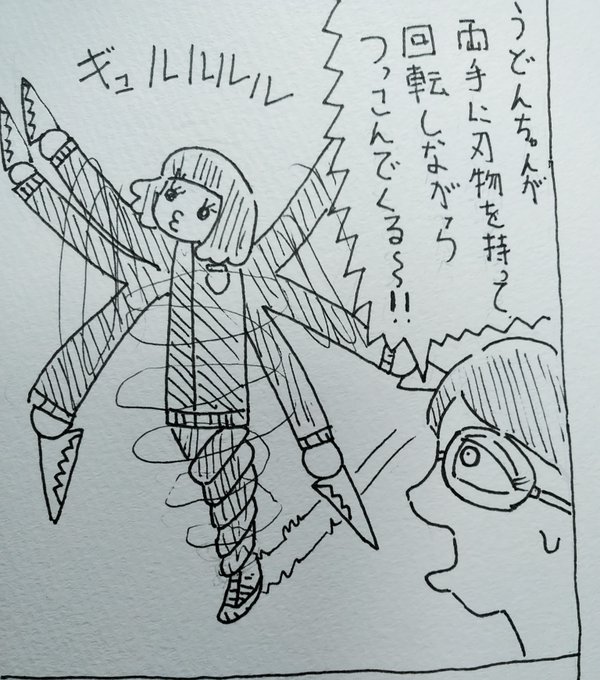 うどんちゃんが
両手に刃物を持って
回転しながら
つっこんでくる～!!
ギュルルルル